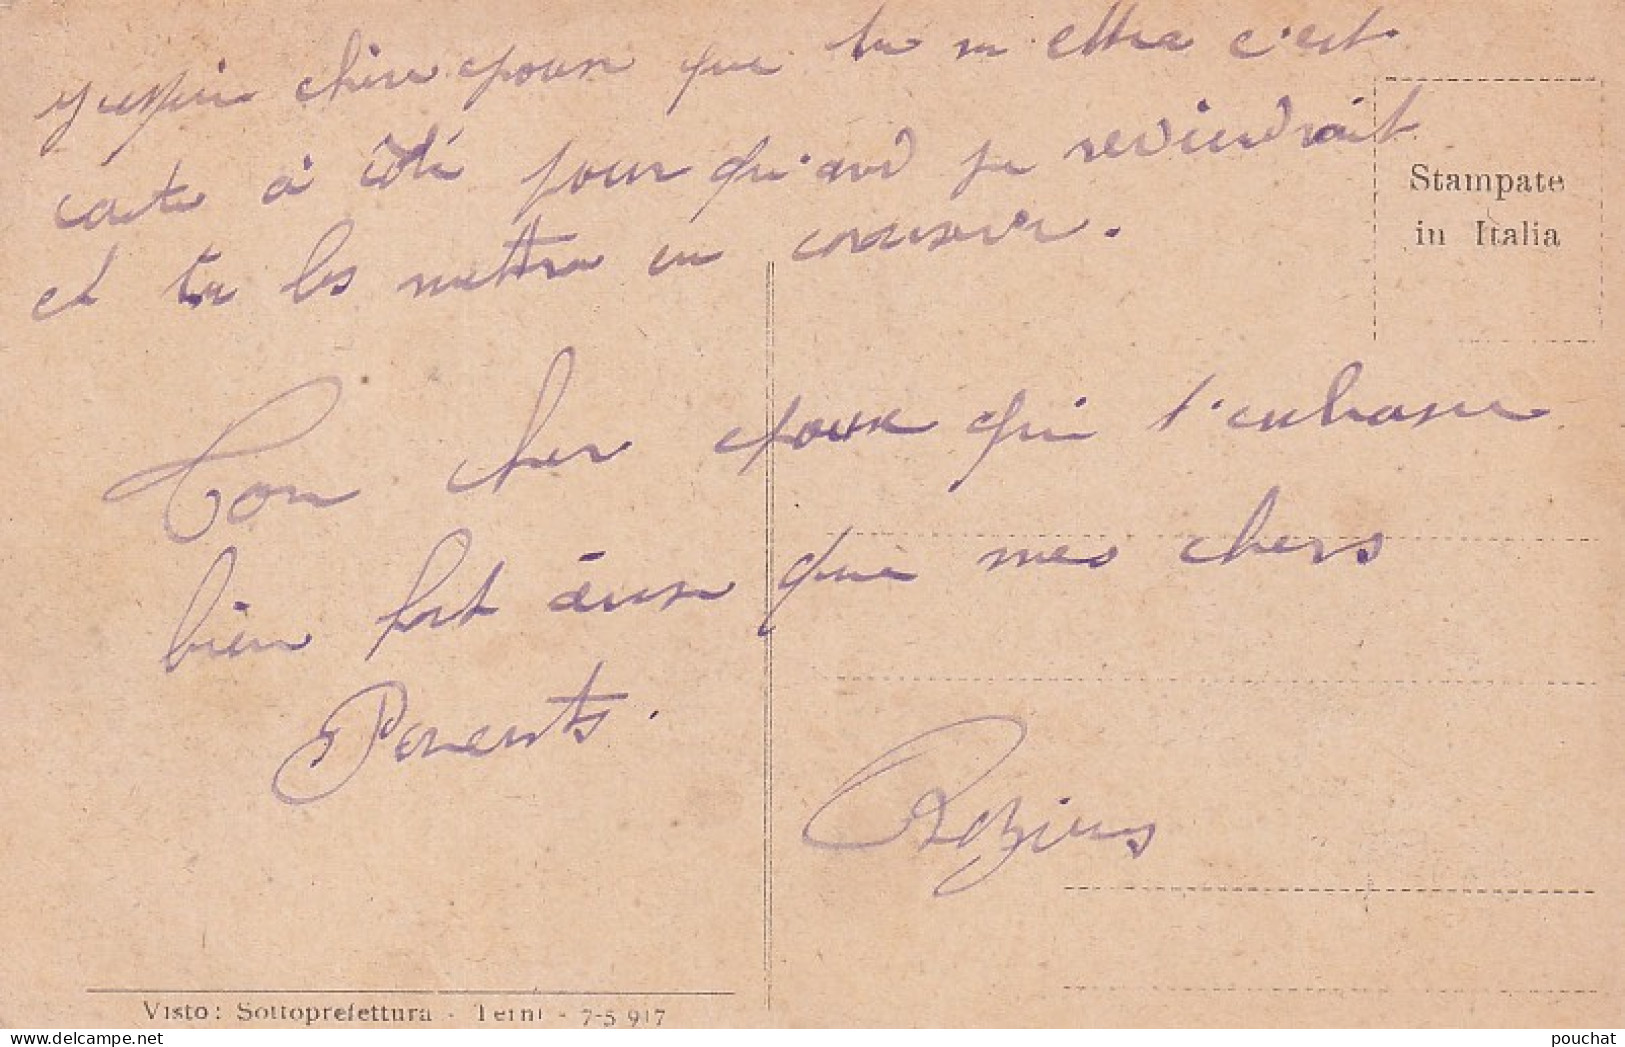 j'espère chère épouse que tu mettra c'est
carte a côté pour qu'and je reviendrait
et tu les mettra en
Stampate
in Italia
Ton cher époux qui t'embrasse
bien fort ainsi que mes chers
Parents.
Visto: Sottoprefettura - Terni - 7-5 917
pouchat